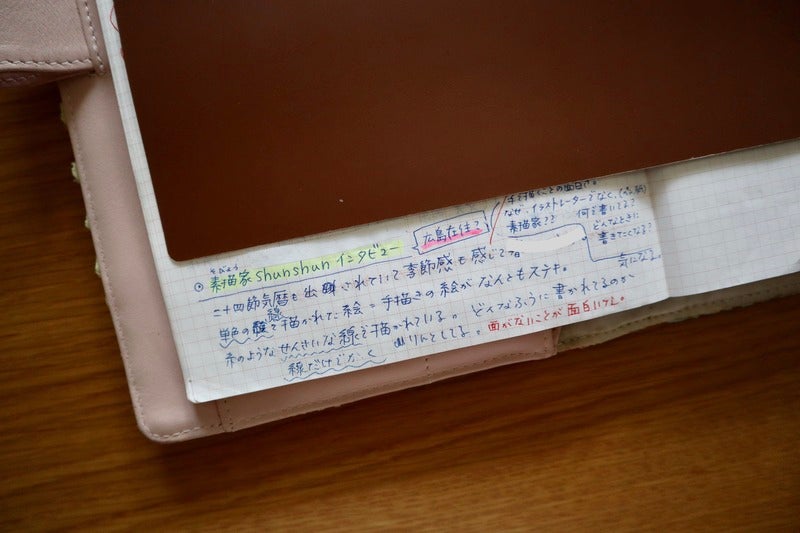 手で描くことの面白さ。
なぜ、イラストレーターでなく、
素描家??
何で書いてる?
どんなときに
書きたくなる?
気になる。
広島在住?
そびょう
素描家 shunshun インタビュー
二十四節気暦も出版されていて季節感も感じ
単色の線で描かれた絵 = 手描きの絵がなんともステキ。
糸のようなせんさいな線で描かれている。 どんなふうに書かれてるのか
線だけでかく りんとしてる。面がないことが面白い